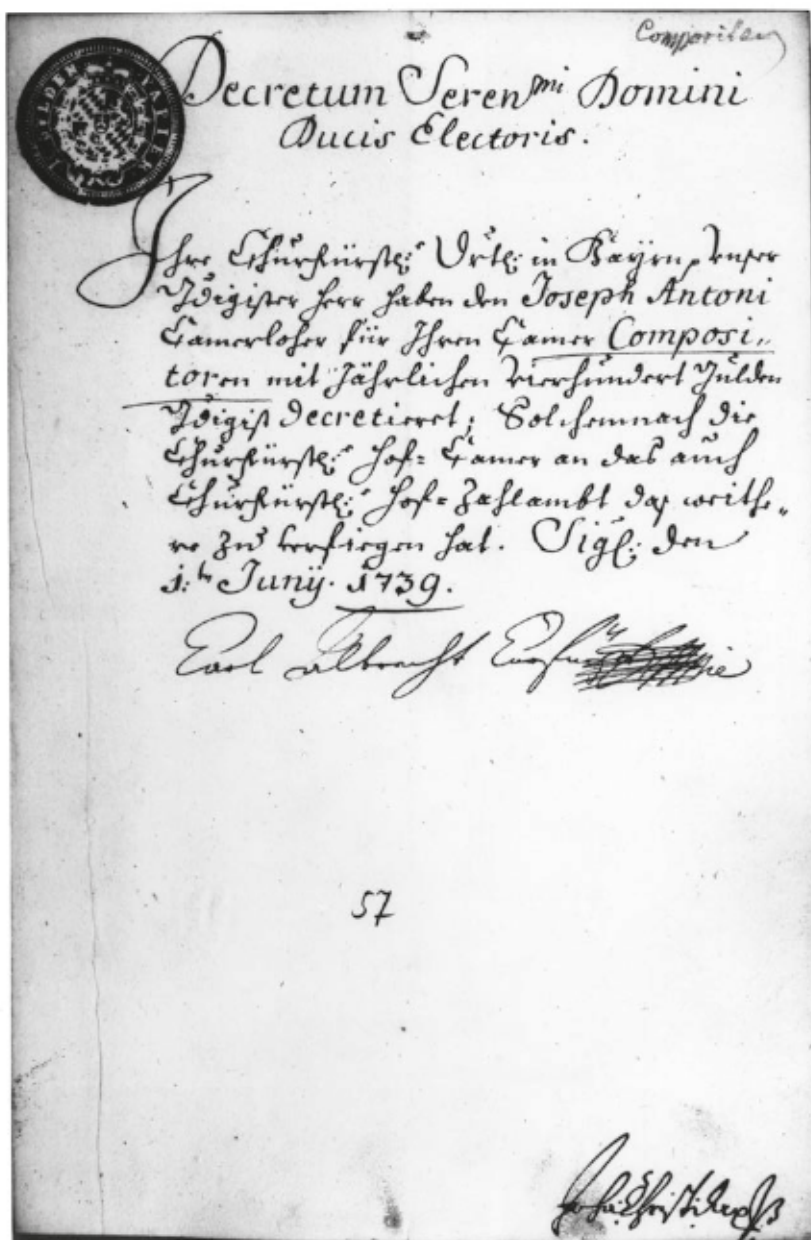 Compositeur
Decretum Seren.mi Domini
Ducis Electoris.
Ihre Churfürstl: Drtl: in Bayrn, Unser
gdigister Herr haben den Joseph Antoni
Camerloher für Ihren Camer Composi„
toren mit Jährlichen vierhundert Gulden
gdigist decretieret; Solchemnach die
Churfürstl: Hof= Camer an das auch
Churfürstl: Hof= Zahlambt das weithe„
re zu verfiegen hat. Sigl: den
1:ten Junÿ. 1739.
Carl Albrecht Churfürst
57